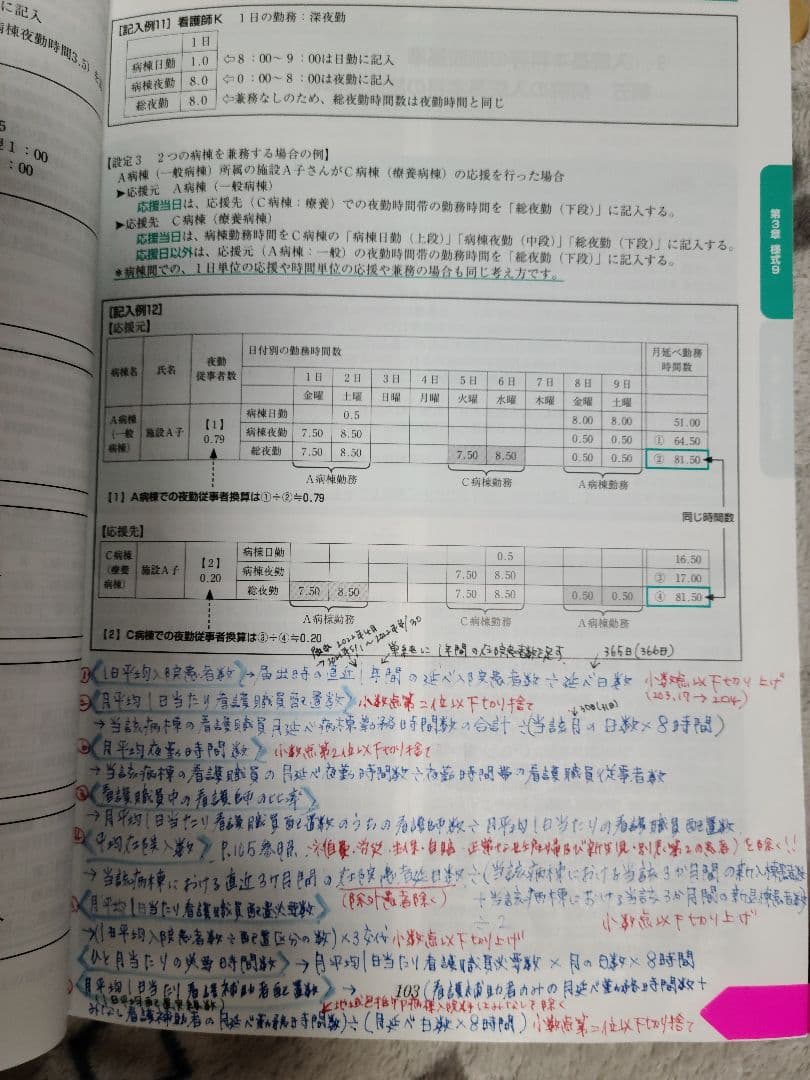 に記入
病棟夜勤時間3.5）を
1：00
：00
【記入例11】看護師K　1日の勤務：深夜勤
1日
病棟日勤　1.0　⇦8：00〜9：00は日勤に記入
病棟夜勤　8.0　⇦0：00〜8：00は夜勤に記入
総夜勤　8.0　⇦兼務なしのため、総夜勤時間数は夜勤時間と同じ
【設定3　2つの病棟を兼務する場合の例】
A病棟（一般病棟）所属の施設A子さんがC病棟（療養病棟）の応援を行った場合
▶応援元　A病棟（一般病棟）
応援当日は、応援先（C病棟：療養）での夜勤時間帯の勤務時間を「総夜勤（下段）」に記入する。
▶応援先　C病棟（療養病棟）
応援当日は、病棟勤務時間をC病棟の「病棟日勤（上段）」「病棟夜勤（中段）」「総夜勤（下段）」に記入する。
応援日以外は、応援元（A病棟：一般）の夜勤時間帯の勤務時間を「総夜勤（下段）」に記入する。
＊病棟間での、1日単位の応援や時間単位の応援や兼務の場合も同じ考え方です。
第3章 様式9
【記入例12】
【応援元】
病棟名　氏名　夜勤従事者数　日付別の勤務時間数　月延べ勤務時間数
1日　2日　3日　4日　5日　6日　7日　8日　9日
金曜　土曜　日曜　月曜　火曜　水曜　木曜　金曜　土曜
A病棟（一般病棟）　施設A子　【1】0.79
病棟日勤　0.5　8.00　8.00　51.00
病棟夜勤　7.50　8.50　0.50　0.50　①　64.50
総夜勤　7.50　8.50　7.50　8.50　0.50　0.50　②　81.50
A病棟勤務　C病棟勤務　A病棟勤務
【1】A病棟での夜勤従事者換算は①÷②≒0.79
同じ時間数
【応援先】
C病棟（療養病棟）　施設A子　【2】0.20
病棟日勤　0.5　16.50
病棟夜勤　7.50　8.50　③　17.00
総夜勤　7.50　8.50　7.50　8.50　0.50　0.50　④　81.50
A病棟勤務　C病棟勤務　A病棟勤務
【2】C病棟での夜勤従事者換算は③÷④≒0.20
1年間の在院患者数で足す　365日（366日）
《1日平均入院患者数》→届出時の直近1年間の延べ入院患者数÷延べ日数　小数点以下切り上げ
《月平均1日当たり看護職員配置数》小数点第二位以下切り捨て
→当該病棟の看護職員月延べ病棟勤務時間数の合計÷（当該月の日数×8時間）
《月平均夜勤時間数》小数点第2位以下切り捨て
→当該病棟の看護職員の月延べ夜勤時間数÷夜勤時間帯の看護職員従事者数
《看護職員中の看護師の比率》
→月平均1日当たり看護職員配置数のうちの看護師数÷月平均1日当たりの看護職員配置数
《平均在院日数》P.165参照　を除く!!
→当該病棟における直近3ヶ月間の在院患者延日数÷（当該病棟における当該3か月間の新入棟患者数
（除外患者除く）　＋当該病棟における当該3か月間の新退棟患者数）
÷2　小数点以下切り上げ
《月平均1日当たり看護職員配置必要数》
→（1日平均入院患者数÷配置区分の数）×3　小数点以下切り上げ
《ひと月当たりの必要時間数》→月平均1日当たり看護職員必要数×月の日数×8時間
《月平均1日当たり看護補助者配置数》→（看護補助者のみの月延べ勤務時間数＋
103
みなし看護補助者の月延べ勤務時間数）÷（月延べ日数×8時間）小数点第二位以下切り捨て